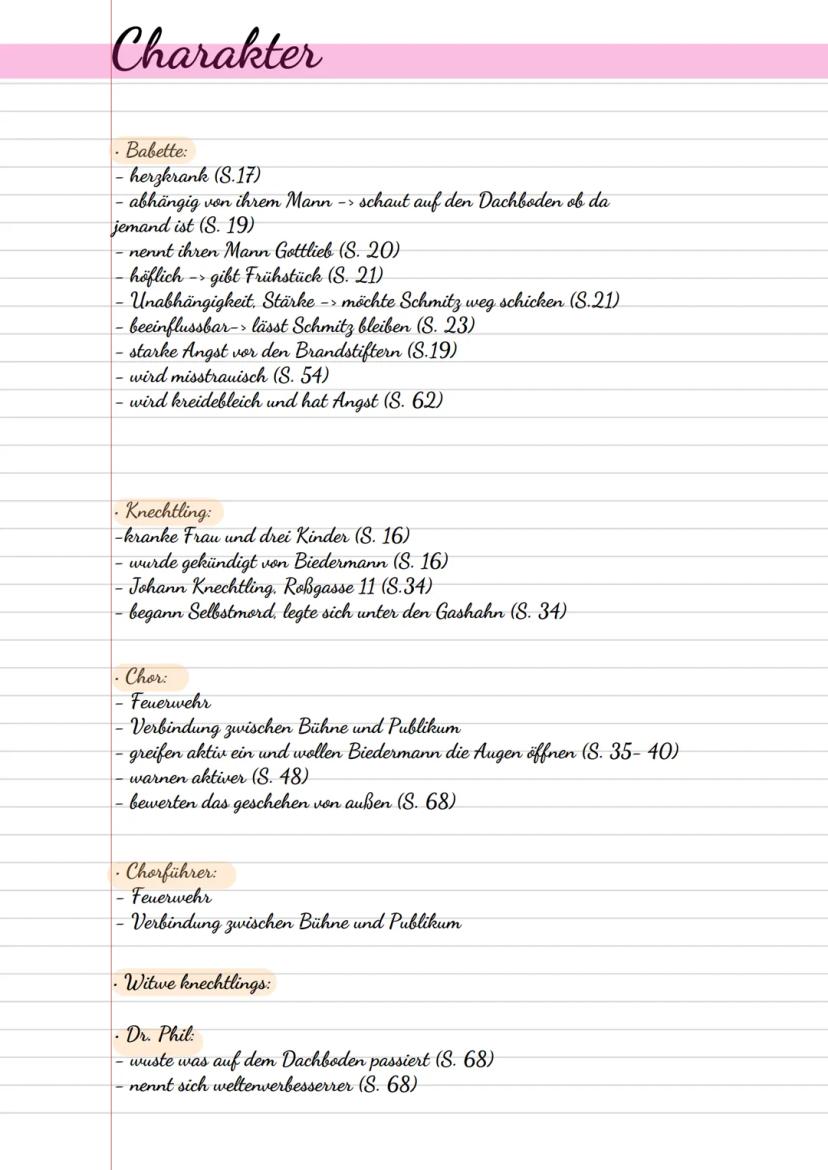 Charakter
· Babette:
- herzkrank (S.17)
- abhängig von ihrem Mann -> schaut auf den Dachboden ob da
jemand ist (S. 19)
- nennt ihren Mann Gottlieb (S. 20)
- höflich -> gibt Frühstück (S. 21)
- Unabhängigkeit, Stärke -> möchte Schmitz weg schicken (S.21)
- beeinflussbar-> lässt Schmitz bleiben (S. 23)
- starke Angst vor den Brandstiftern (S.19)
- wird misstrauisch (S. 54)
- wird kreidebleich und hat Angst (S. 62)
· Knechtling:
-kranke Frau und drei Kinder (S. 16)
- wurde gekündigt von Biedermann (S. 16)
- Johann Knechtling, Roßgasse 11 (S.34)
- begann Selbstmord, legte sich unter den Gashahn (S. 34)
· Chor:
- Feuerwehr
- Verbindung zwischen Bühne und Publikum
- greifen aktiv ein und wollen Biedermann die Augen öffnen (S. 35- 40)
- warnen aktiver (S. 48)
- bewerten das geschehen von außen (S. 68)
· Chorführer:
- Feuerwehr
- Verbindung zwischen Bühne und Publikum
· Witwe knechtlings:
· Dr. Phil:
- wuste was auf dem Dachboden passiert (S. 68)
- nennt sich weltenverbesserrer (S. 68)